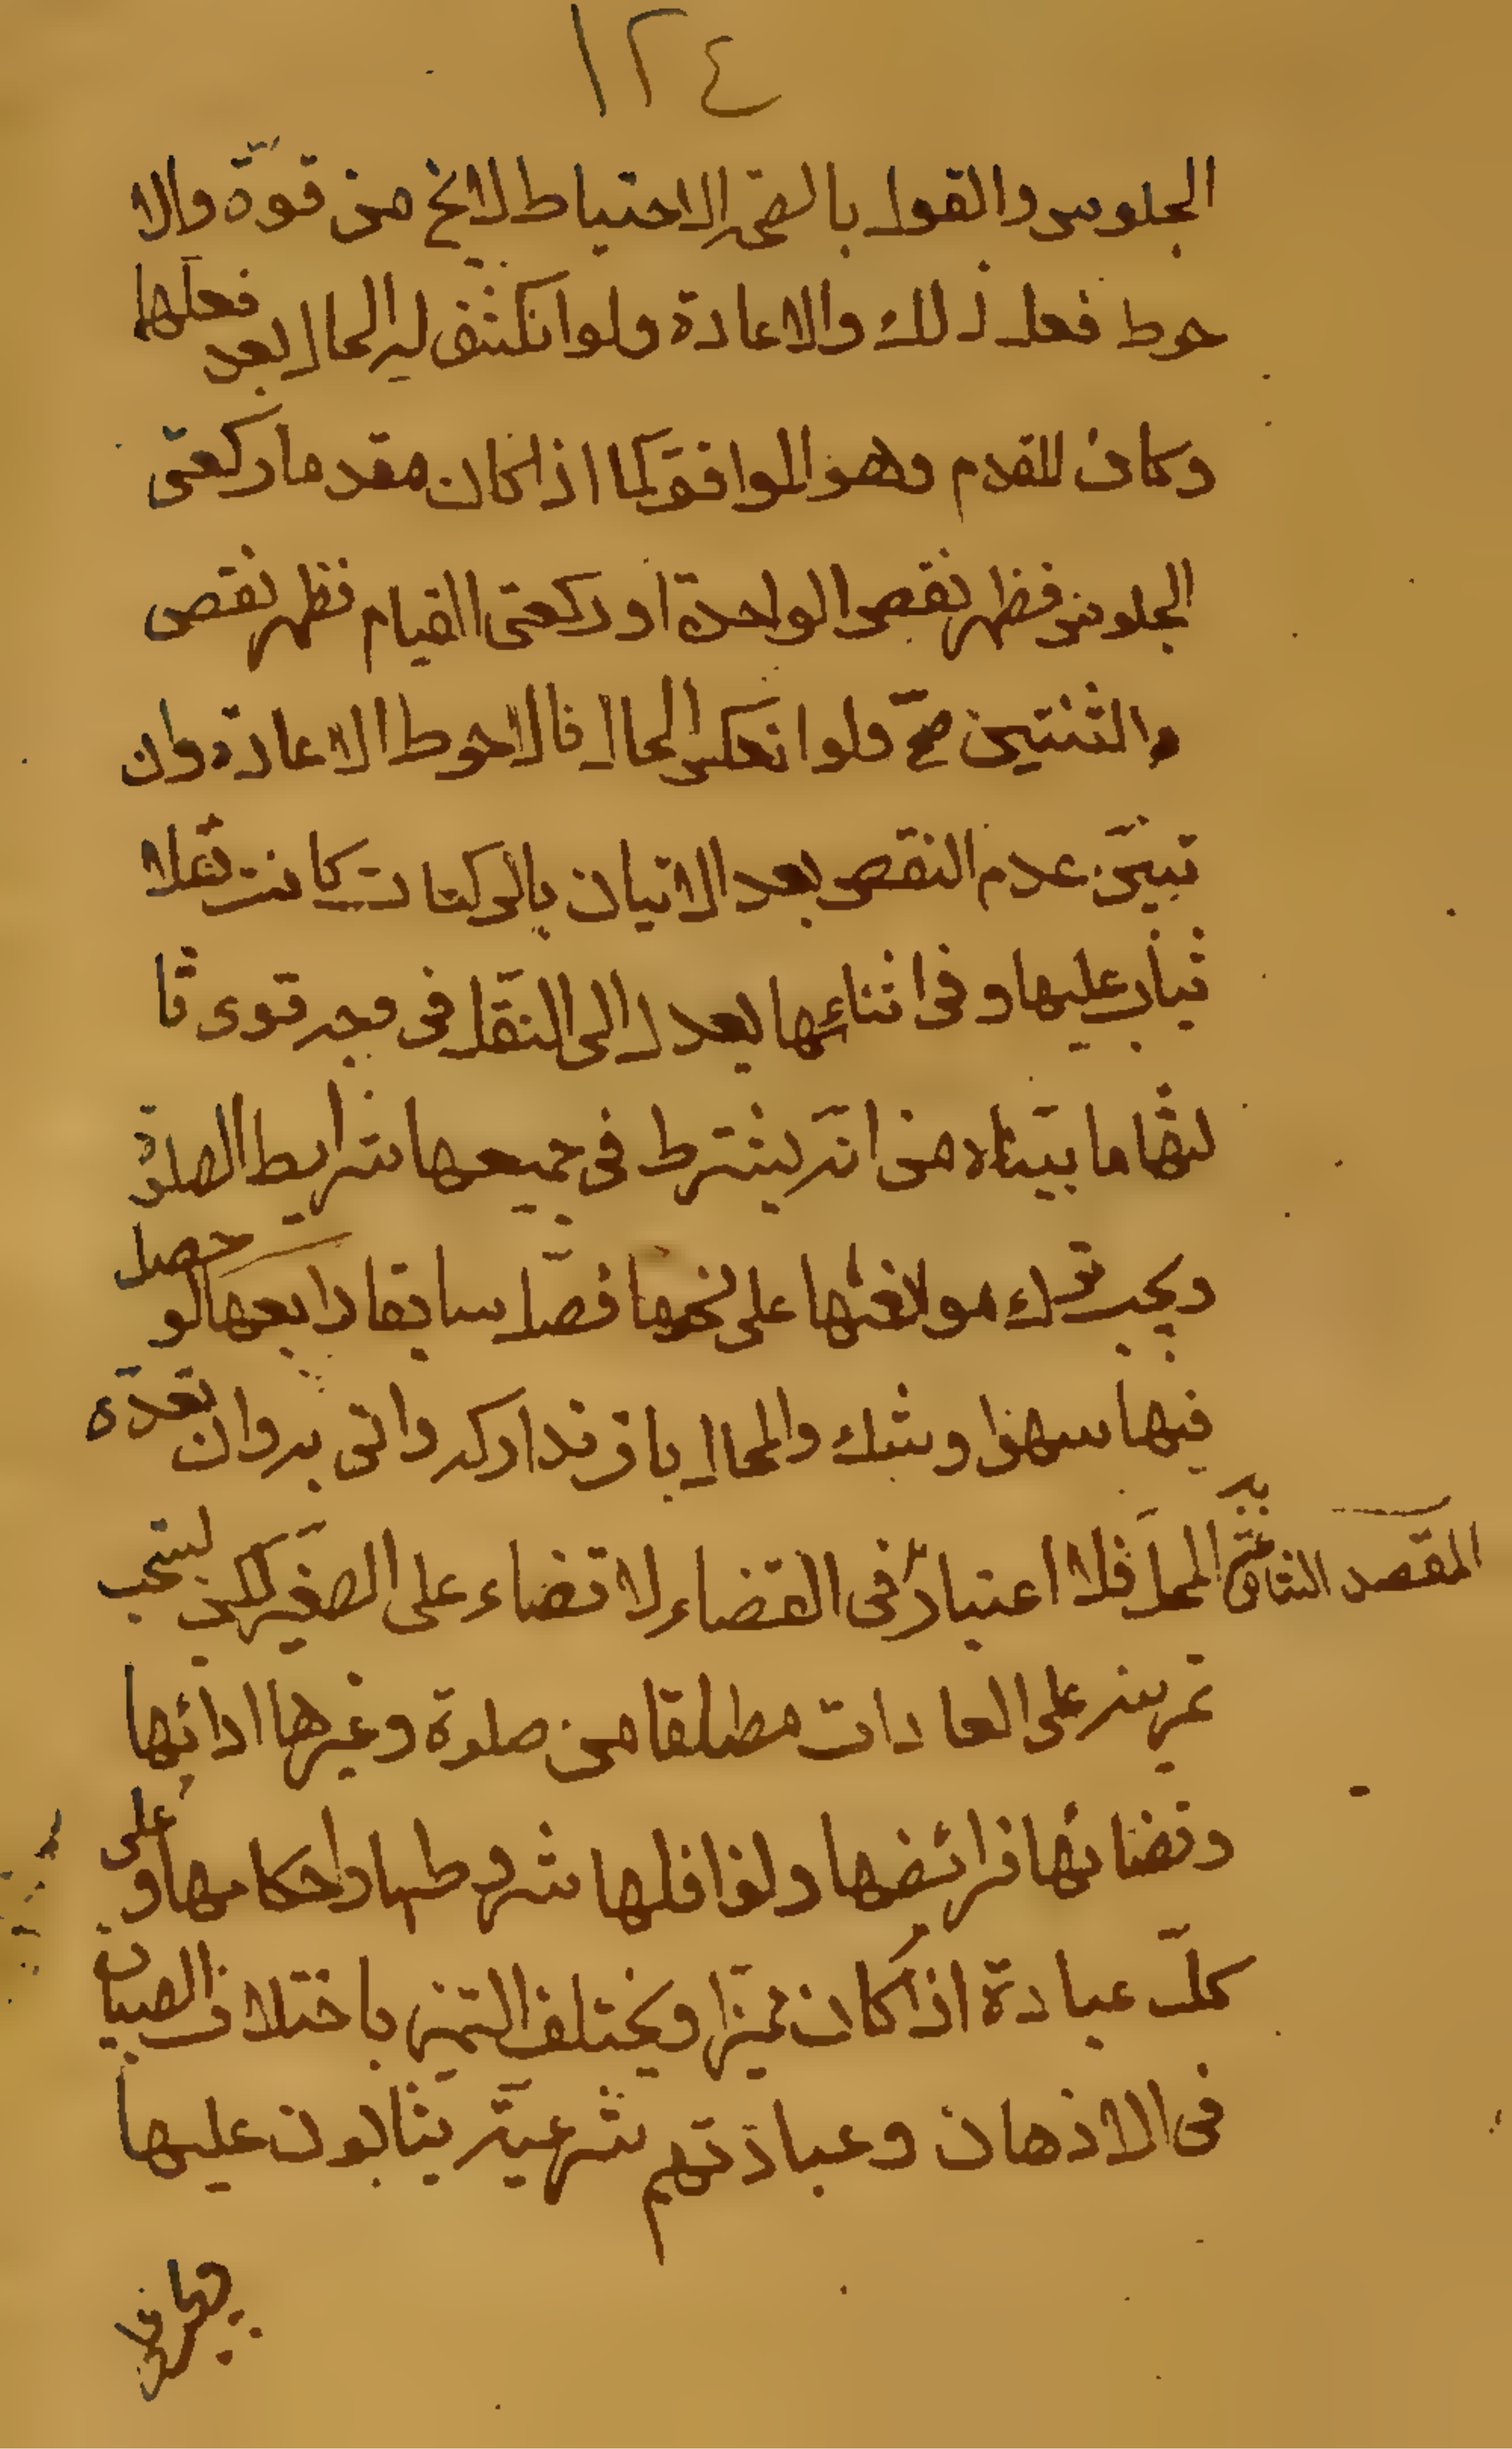 ١٢٤
الجلوس والقول بالصحة الاحتياط لا يخ من قوة والا
حوط فعل ذلك والاعادة ولو انكشف له الحال بعد فعلها
وكان المقدم وهو الموافق كما اذا كان مقدما ركعتى
الجلوس فظهر نقص الواحدة او ركعتى القيام فظهر نقص
والثنتين صح ولو انعكس الحال فالاحوط الاعادة وان
تبين عدم النقص بعد الاتيان بالركعات كانت نفلا
يثاب عليها وفى اثنائها يعدل الى النفل فى وجه قوى ثا
لثها ما بيناه من انه يشترط فى جميعها شرايط الصلوة
ويجب ترك على نحوها فصل سابقا رابعها لو حصل
فيها سهو او شك والمحل باق تداركه واتى به وان تعداه
المقصد الثانى المحل فلا اعتبار فى القضاء لا قضاء على الصغير لكن يستحب
تمرينه على العبادات مطلقا من صلوة وغيرها ادائها
وقضائها فرائضها ونوافلها شروطها واحكامها وعلى
كل عبادة اذا كان مميزا ويختلف التميز باختلاف الصبيان
فى الاذهان وعبادتهم شرعية يثابون عليها